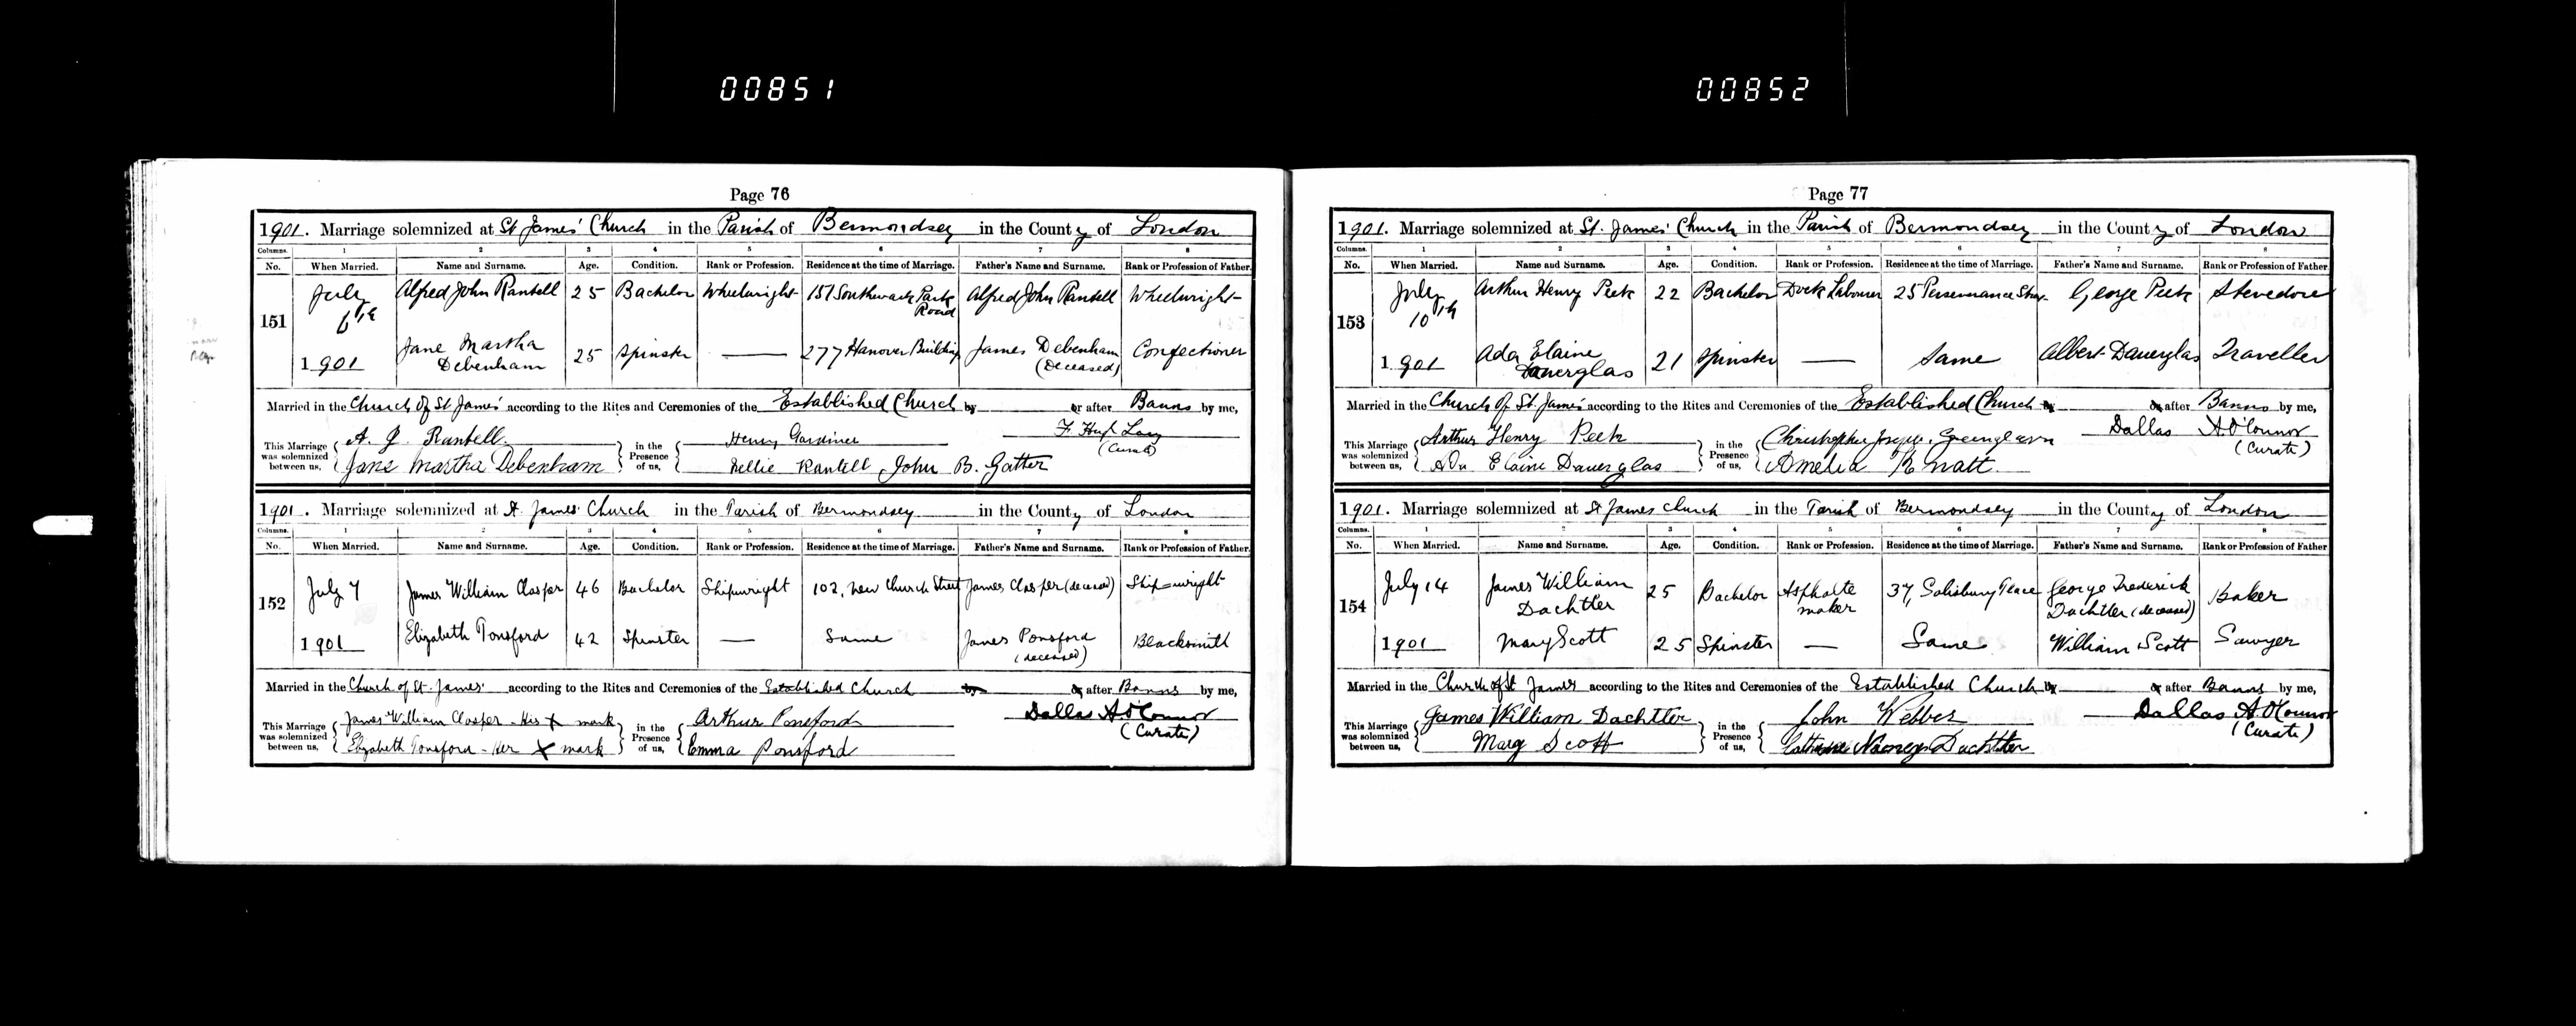 00851
00852
Page 76
1901. Marriage solemnized at St James' Church in the Parish of Bermondsey in the County of London
Columns. 1 2 3 4 5 6 7 8
No. When Married. Name and Surname. Age. Condition. Rank or Profession. Residence at the time of Marriage. Father's Name and Surname. Rank or Profession of Father.
151 July 6th 1901
Alfred John Rantell 25 Bachelor Wheelwright 157 Southwark Park Road Alfred John Rantell Wheelwright
Jane Martha Debenham 25 Spinster — 277 Hanover Buildings James Debenham (Deceased) Confectioner
Married in the Church of St James' according to the Rites and Ceremonies of the Established Church by or after Banns by me,
This Marriage was solemnized between us, A. J. Rantell. Jane Martha Debenham in the Presence of us, Henry Gardiner Nellie Rantell, John B. Gatter F. Hugh (Curate)
1901. Marriage solemnized at St. James' Church in the Parish of Bermondsey in the County of London
Columns. 1 2 3 4 5 6 7 8
No. When Married. Name and Surname. Age. Condition. Rank or Profession. Residence at the time of Marriage. Father's Name and Surname. Rank or Profession of Father.
152 July 7 1901
James William Clasper 46 Bachelor Shipwright 102, New Church Street James Clasper (deceased) Ship-wright
Elizabeth Ponsford 42 Spinster — Same James Ponsford (deceased) Blacksmith
Married in the Church of St. James' according to the Rites and Ceremonies of the Established Church by or after Banns by me,
This Marriage was solemnized between us, James William Clasper - His X mark Elizabeth Ponsford - Her X mark in the Presence of us, Arthur Ponsford Emma Ponsford Dallas A O'Connor (Curate)
Page 77
1901. Marriage solemnized at St. James' Church in the Parish of Bermondsey in the County of London
Columns. 1 2 3 4 5 6 7 8
No. When Married. Name and Surname. Age. Condition. Rank or Profession. Residence at the time of Marriage. Father's Name and Surname. Rank or Profession of Father
153 July 10th 1901
Arthur Henry Peek 22 Bachelor Dock Labourer 25 Perseverance George Peek Stevedore
Ada Elaine Dauerglas 21 Spinster — Same Albert Dauerglas Traveller
Married in the Church of St. James' according to the Rites and Ceremonies of the Established Church by or after Banns by me,
This Marriage was solemnized between us, Arthur Henry Peek Ada Elaine Dauerglas in the Presence of us, Christopher Joseph Amelia K Dallas A O'Connor (Curate)
1901. Marriage solemnized at St James Church in the Parish of Bermondsey in the County of London
Columns. 1 2 3 4 5 6 7 8
No. When Married. Name and Surname. Age. Condition. Rank or Profession. Residence at the time of Marriage. Father's Name and Surname. Rank or Profession of Father
154 July 14 1901
James William Dachtler 25 Bachelor Asphalte maker 37, Salisbury Place George Frederick Dachtler (deceased) Baker
Mary Scott 25 Spinster — Same William Scott Sawyer
Married in the Church of St James according to the Rites and Ceremonies of the Established Church by or after Banns by me,
This Marriage was solemnized between us, James William Dachtler Mary Scott in the Presence of us, John Webber Dachtler Dallas A. O'Connor (Curate)